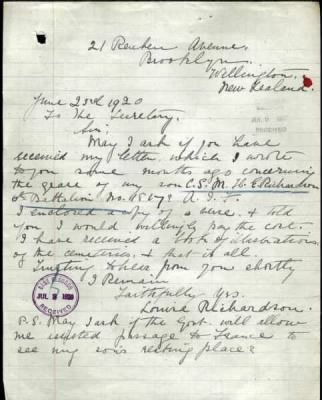 21 Reuben Avenue,
Brooklyn.
Wellington.
New Zealand.
June 23rd 1920
To The Secretary.
Sir,
May I ask if you have
received my letter which I wrote
to you some months ago concerning
the grave of my son C.S.M. H. E. Richardson
Battalion No. A. I. F.
I enclosed a copy of a verse, & told
you I would willingly pay the cost.
I have received a book of illustrations
of the cemeteries, & that is all.
Trusting to hear from you shortly
I Remain
Faithfully Yrs.
Louie Richardson.
P.S. May I ask if the Govt. will allow
me assisted passage to France to
see my son's resting place?
RECEIVED
JUL 1920
RECEIVED